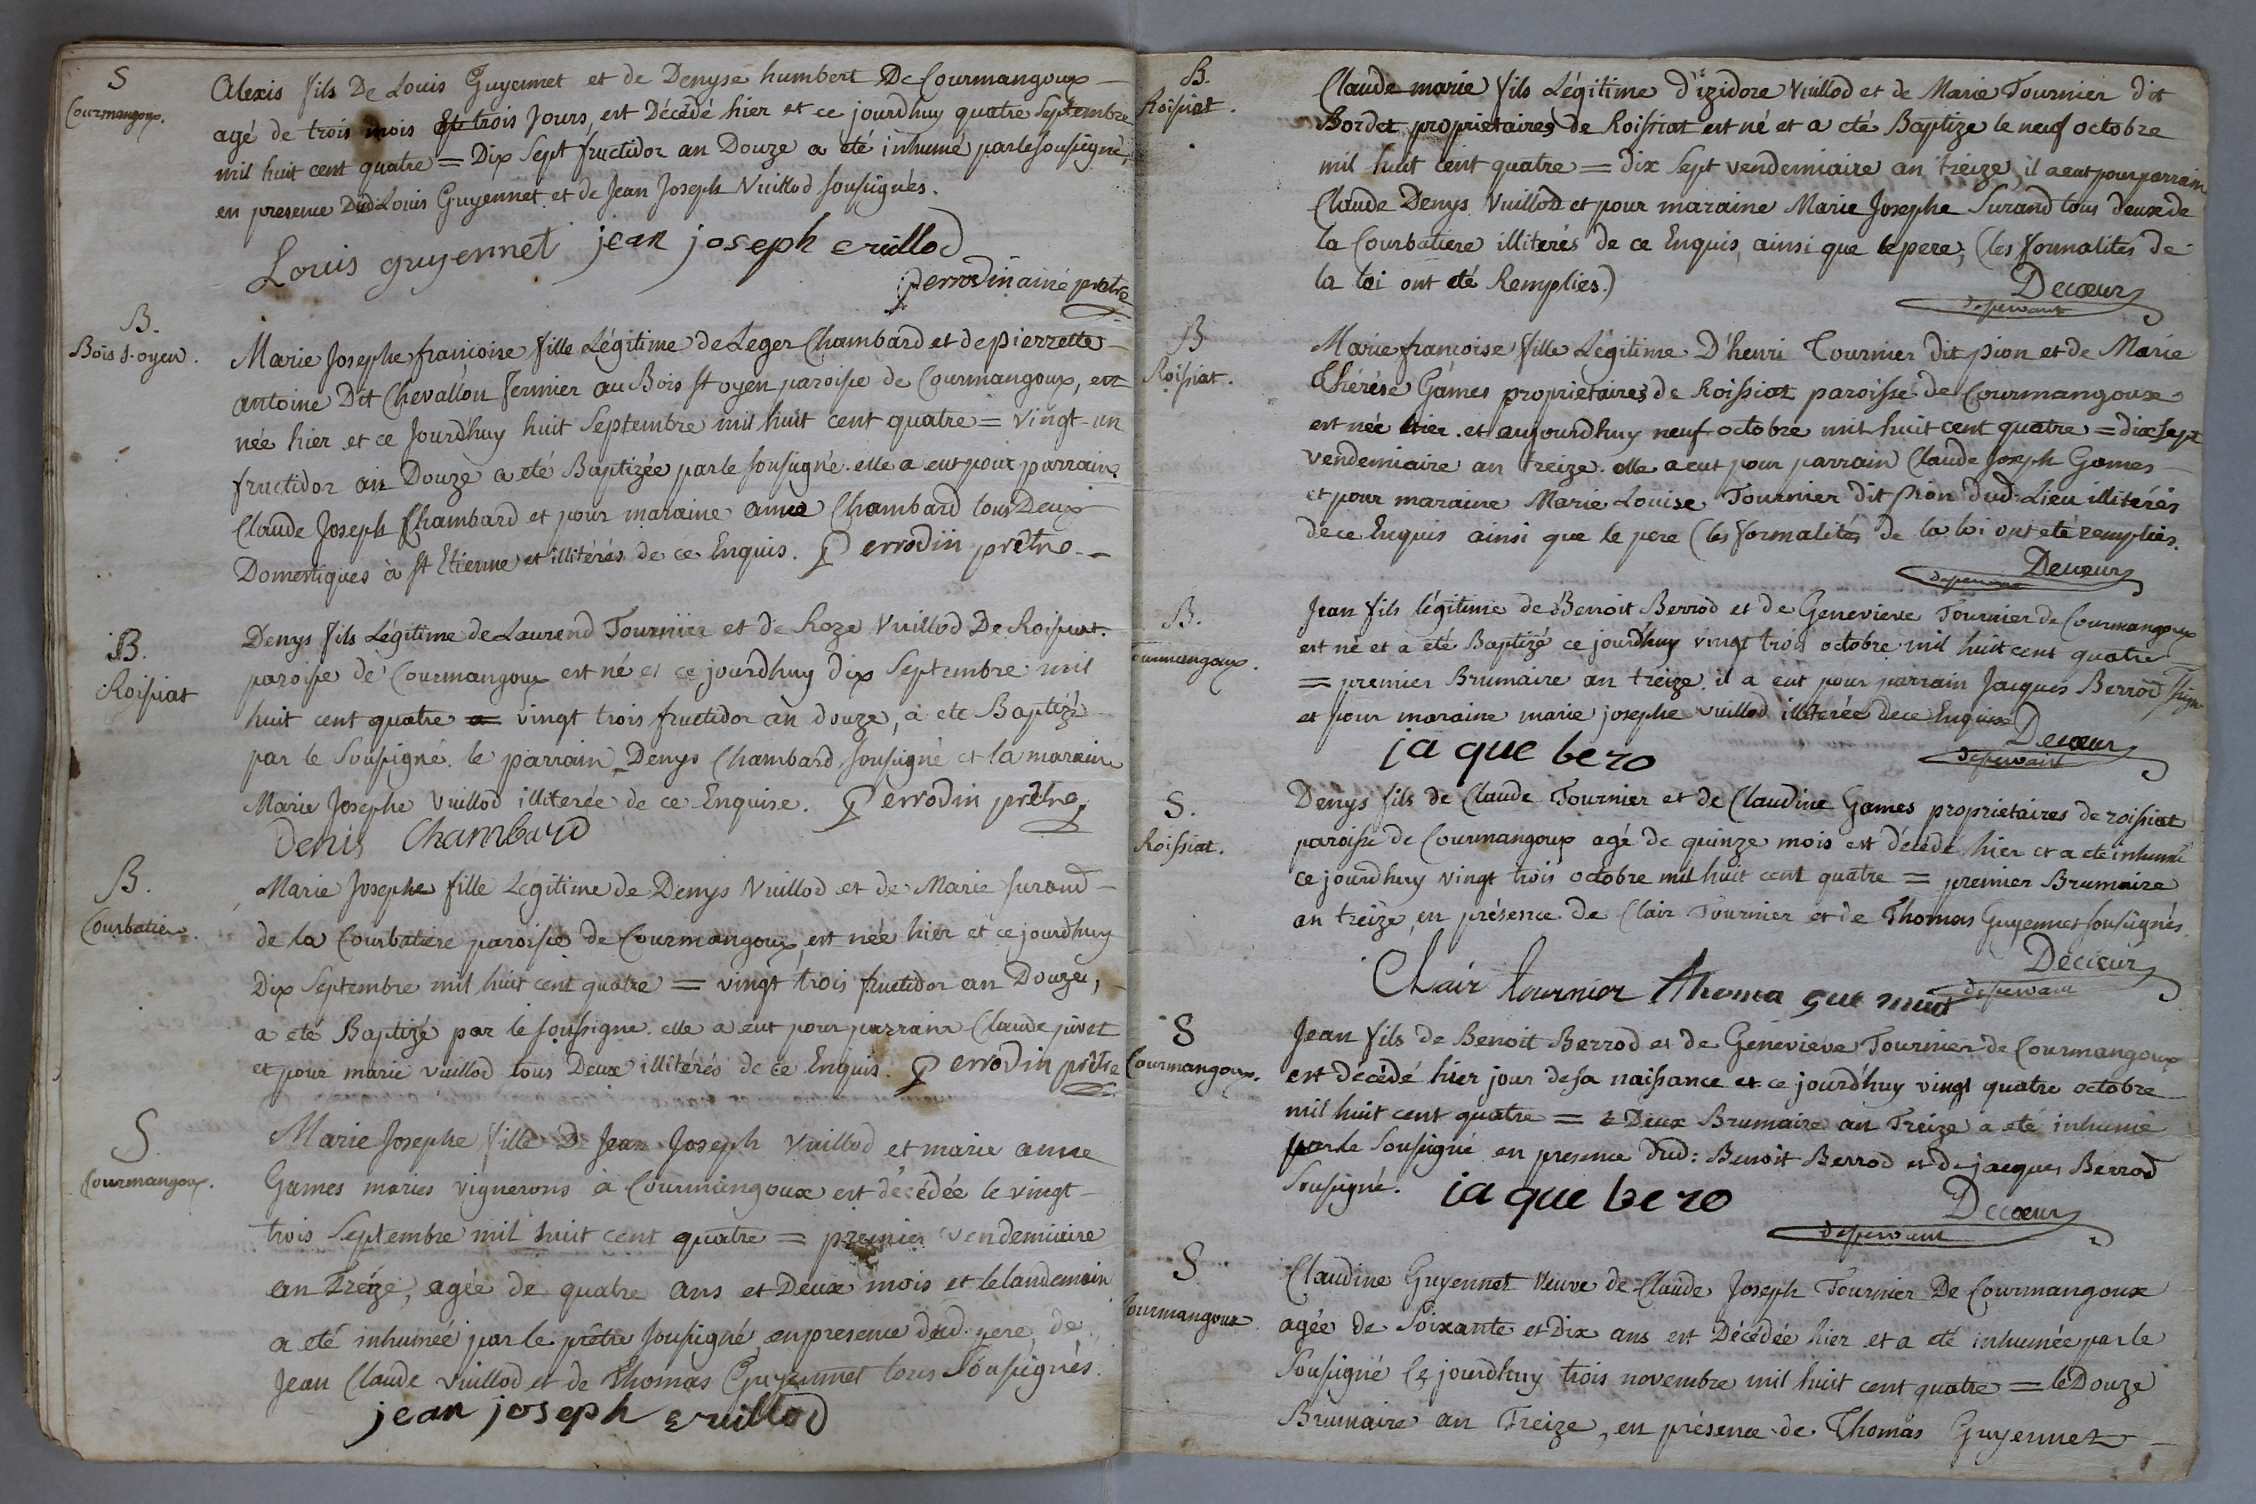 S
Courmangoux.
Alexis fils De Louis Guyennet et de Denyse humbert De Courmangoux
agé de trois mois et trois Jours, est Décédé hier et ce jourdhuy quatre Septembre
mil huit cent quatre = Dix Sept fructidor an Douze a été inhumé par le sousigné,
en presence Dud Louis Guyennet et de Jean Joseph Vuillod sousignés.
Louis guyennet jean joseph vuillod
perrodin ainé prêtre
B.
Bois st. oyen.
Marie Josephe francoise fille Légitime de Leger Chambard et de pierrette
antoine Dit Chevallon fermier au Bois st oyen paroisse de Courmangoux, est
née hier et ce Jourdhuy huit Septembre mil huit cent quatre = vingt-un
fructidor an Douze a eté Baptizée par le sousigné. elle a eut pour parrain
Claude Joseph Chambard et pour maraine anne Chambard tous Deux
Domestiques à st Etienne et illitérés de ce Enquis. Perrodin prêtre
B.
Roissiat
Denys fils Légitime de Laurend Tournier et de Roze Vuillod De Roissiat.
paroisse de Courmangoux est né et ce jourdhuy dix Septembre mil
huit cent quatre = vingt trois fructidor an douze, a ete Baptizé
par le Sousigné. le parrain Denys Chambard sousigné et la maraine
Marie Josephe Vuillod illiterée de ce Enquise. Perrodin prêtre
Denis Chambard
B.
Courbatiere.
Marie Josephe fille Légitime de Denys Vuillod et de Marie surand
de la Courbatiere paroisse de Courmangoux, est née hier et ce jourdhuy
Dix Septembre mil huit cent quatre = vingt trois fructidor an Douze,
a eté Baptizé par le soussigne. elle a eut pour parrain Claude pivet
et pour marie vuillod tous Deux illitérés de ce Enquis. Perrodin prêtre
S
Courmangoux.
Marie Josephe fille D Jean Joseph Vuillod et marie anne
Games maries vignerons à Courmangoux est décédée le vingt
trois Septembre mil huit cent quatre = premier vendemiaire
an Treize, agée de quatre ans et Deux mois et le landemain
a eté inhumée par le prêtre sousigné en presence dud. pere, de
Jean Claude vuillod et de Thomas Guyennet tous Sousignés.
jean joseph vuillod
B.
Roissiat.
Claude marie fils Légitime d'izidore Vuillod et de Marie Tournier dit
Bordet proprietaires de Roissiat est né et a eté Baptize le neuf octobre
mil huit cent quatre = dix sept vendemiaire an treize, il a eut pour parrain
Claude Denys Vuillod et pour maraine Marie Josephe Surand tous deux de
la Courbatiere illiterés de ce Enquis, ainsi que le pere, (les formalités de
la loi ont eté Remplies.)
Decœur
desservant
B
Roissiat.
Marie francoise fille Légitime D'henri Tournier dit pion et de Marie
thérése Games proprietaires de Roissiat paroisse de Courmangoux
est née hier. et aujourdhuy neuf octobre mil huit cent quatre = dix sept
vendemiaire an treize. elle a eut pour parrain Claude Joseph Games
et pour maraine Marie Louise Tournier dit pion dud: Lieu illitérés
de ce Enquis ainsi que le pere (les formalités de la loi ont eté remplies.
Decœur
desservant
B.
ourmangoux.
Jean fils légitime de Benoit Berrod et de Genevieve Tournier de Courmangoux
est né et a été Baptizé ce jourdhuy vingt trois octobre mil huit cent quatre
= premier Brumaire an treize. il a eut pour parrain Jacques Berrod
et pour maraine marie josephe vuillod illiterée de ce Enquise
jaque bero
Decœur
desservant
S.
Roissiat.
Denys fils de Claude Tournier et de Claudine Games proprietaires de roissiat
paroisse de Courmangoux agé de quinze mois est décédé hier et a eté inhumé
ce jourdhuy vingt trois octobre mil huit cent quatre = premier Brumaire
an treize, en présence de Clair Tournier et de Thomas Guyennet sousignés.
Clair tournier thoma
Decœur
desservant
S
Courmangoux.
Jean fils de Benoit Berrod et de Genevieve Tournier de Courmangoux
est décédé hier jour de sa naissance et ce jourdhuy vingt quatre octobre
mil huit cent quatre = Deux Brumaire an Treize a eté inhumé
par le Sousigné en presence dud: Benoit Berrod et de jacques Berrod
Sousigné. jaque bero
Decœur
desservant
S
ourmangoux
Claudine Guyennet veuve de Claude Joseph Tournier De Courmangoux
agée de Soixante et Dix ans est Décédée hier et a eté inhumée par le
Sousigné Ce jourdhuy trois novembre mil huit cent quatre = le Douze
Brumaire an Treize, en présence de Thomas Guyennet